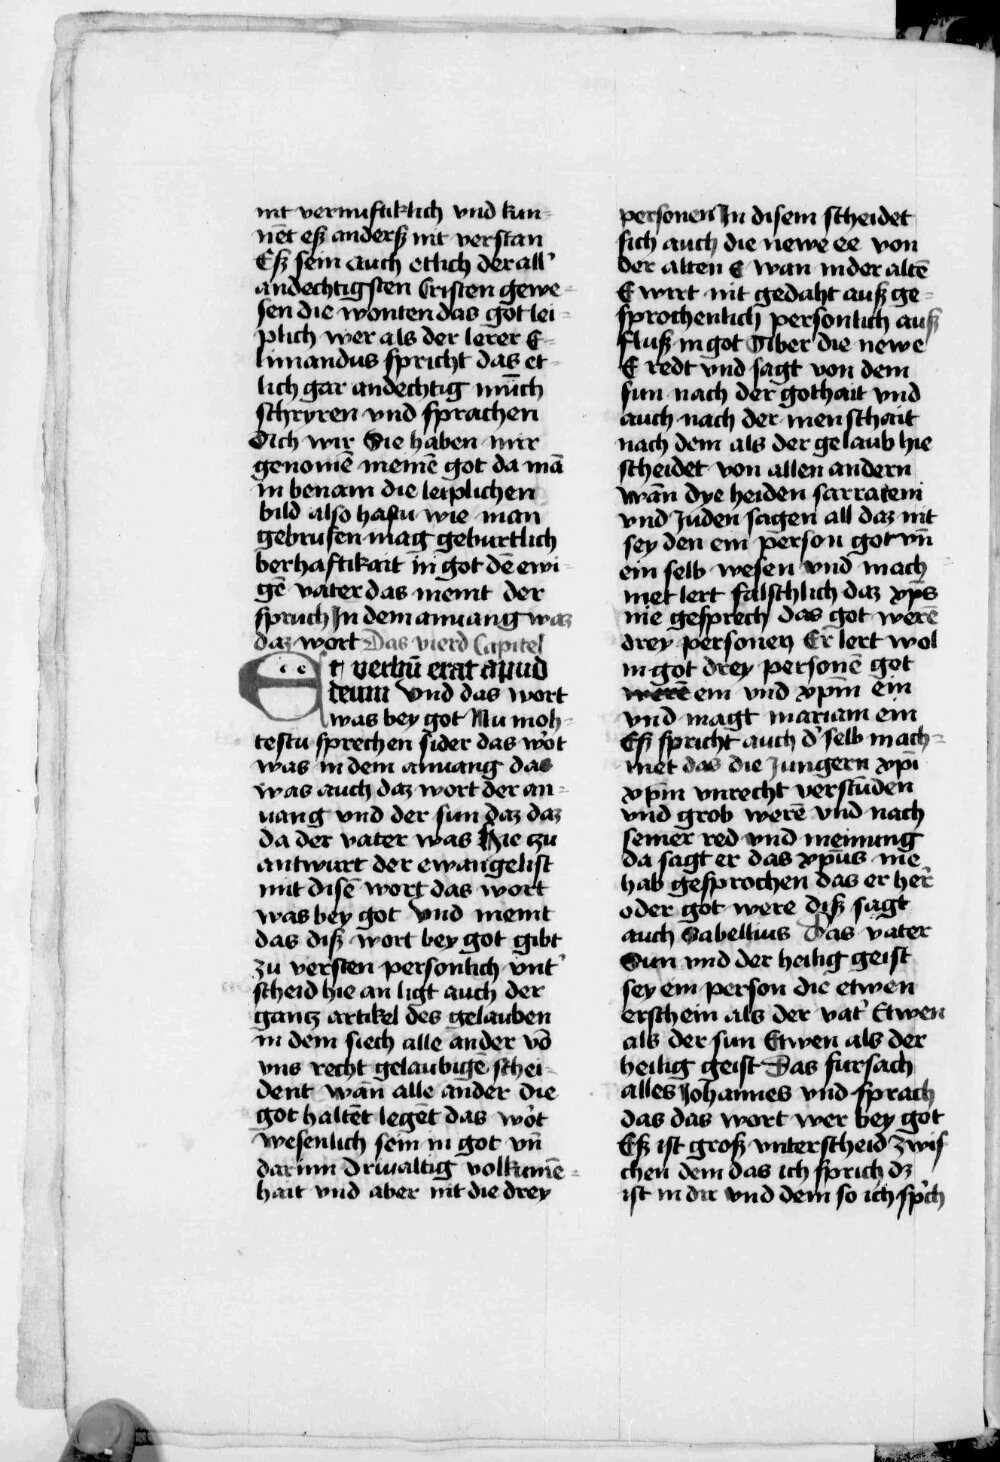 nit vernuftiklich vnd kun-
nēt eß anderß nit verstan
Eß sein auch etlich der all'
andechtigsten Cristen gewe-
sen die wonten das got lei-
plich wer als der lerer E-
limandus spricht das et-
lich gar andechtig mu̅ch
schryren vnd sprachen
Och wir Sie haben mir
genomē meinē got da mā
in benam die leiplichen
bild also hastu wie man
gebrufen mag geburtlich
berhaftikait in got dē ewi-
gē vater das meint der
spruch In dem anuang waz
daz wort Das vierd Capitel
Et verbū erat apud
deum vnd das wort
was bey got Nu moh-
testu sprechen sider das wo't
was in dem anuang das
was auch daz wort der an-
uang vnd der sun daz daz
da der vater was Hie zu
antwurt der ewangelist
mit disē wort das wort
was bey got vnd meint
das diß wort bey got gibt
zu versten personlich vnt'
scheid hie an ligt auch der
gantz artikel des gelauben
in dem siech alle ander vō
vns recht gelaubigē schei-
dent wān alle ander die
got haltēt legēt das wo't
wesenlich sein in got vn̄
darinn driualtig volkumē-
hait vnd aber nit die drey
personen In disem scheidet
sich auch die newe ee von
der alten E wan in der altē
E wirt nit gedaht auß ge-
sprochenlich personlich auß
fluß in got Aber die newe
E redt vnd sagt von dem
sun nach der gothait vnd
auch nach der menschait
nach dem als der gelaub hie
scheidet von allen andern
wān dye heiden sarraceni
vnd Juden sagen all daz nit
sey den ein person got vn̄
ein selb wesen vnd mach
met lert falschlich daz xp̄s
nie gesprech das got werē
drey personen Er lert wol
in got drey personē got
werē ein vnd xpm̄ ein
vnd magt mariam ein
Eß spricht auch d' selb mach-
met das die Jungern xpī
xpm̄ vnrecht verstūden
vnd grob werē vnd nach
seiner red vnd meinung
da sagt er das xpūs nie
hab gesprochen das er her'
oder got were diß sagt
auch Sabellius Das vater
Sun vnd der heilig geist
sey ein person die etwen
erschein als der vat' Etwen
als der sun Etwen als der
heilig geist Das fursach
alles Johannes vnd sprach
das das wort wer bey got
Eß ist groß vnterscheid zwis
chen dem das ich sprich dz
ist in dir vnd dem so ich sp'ch